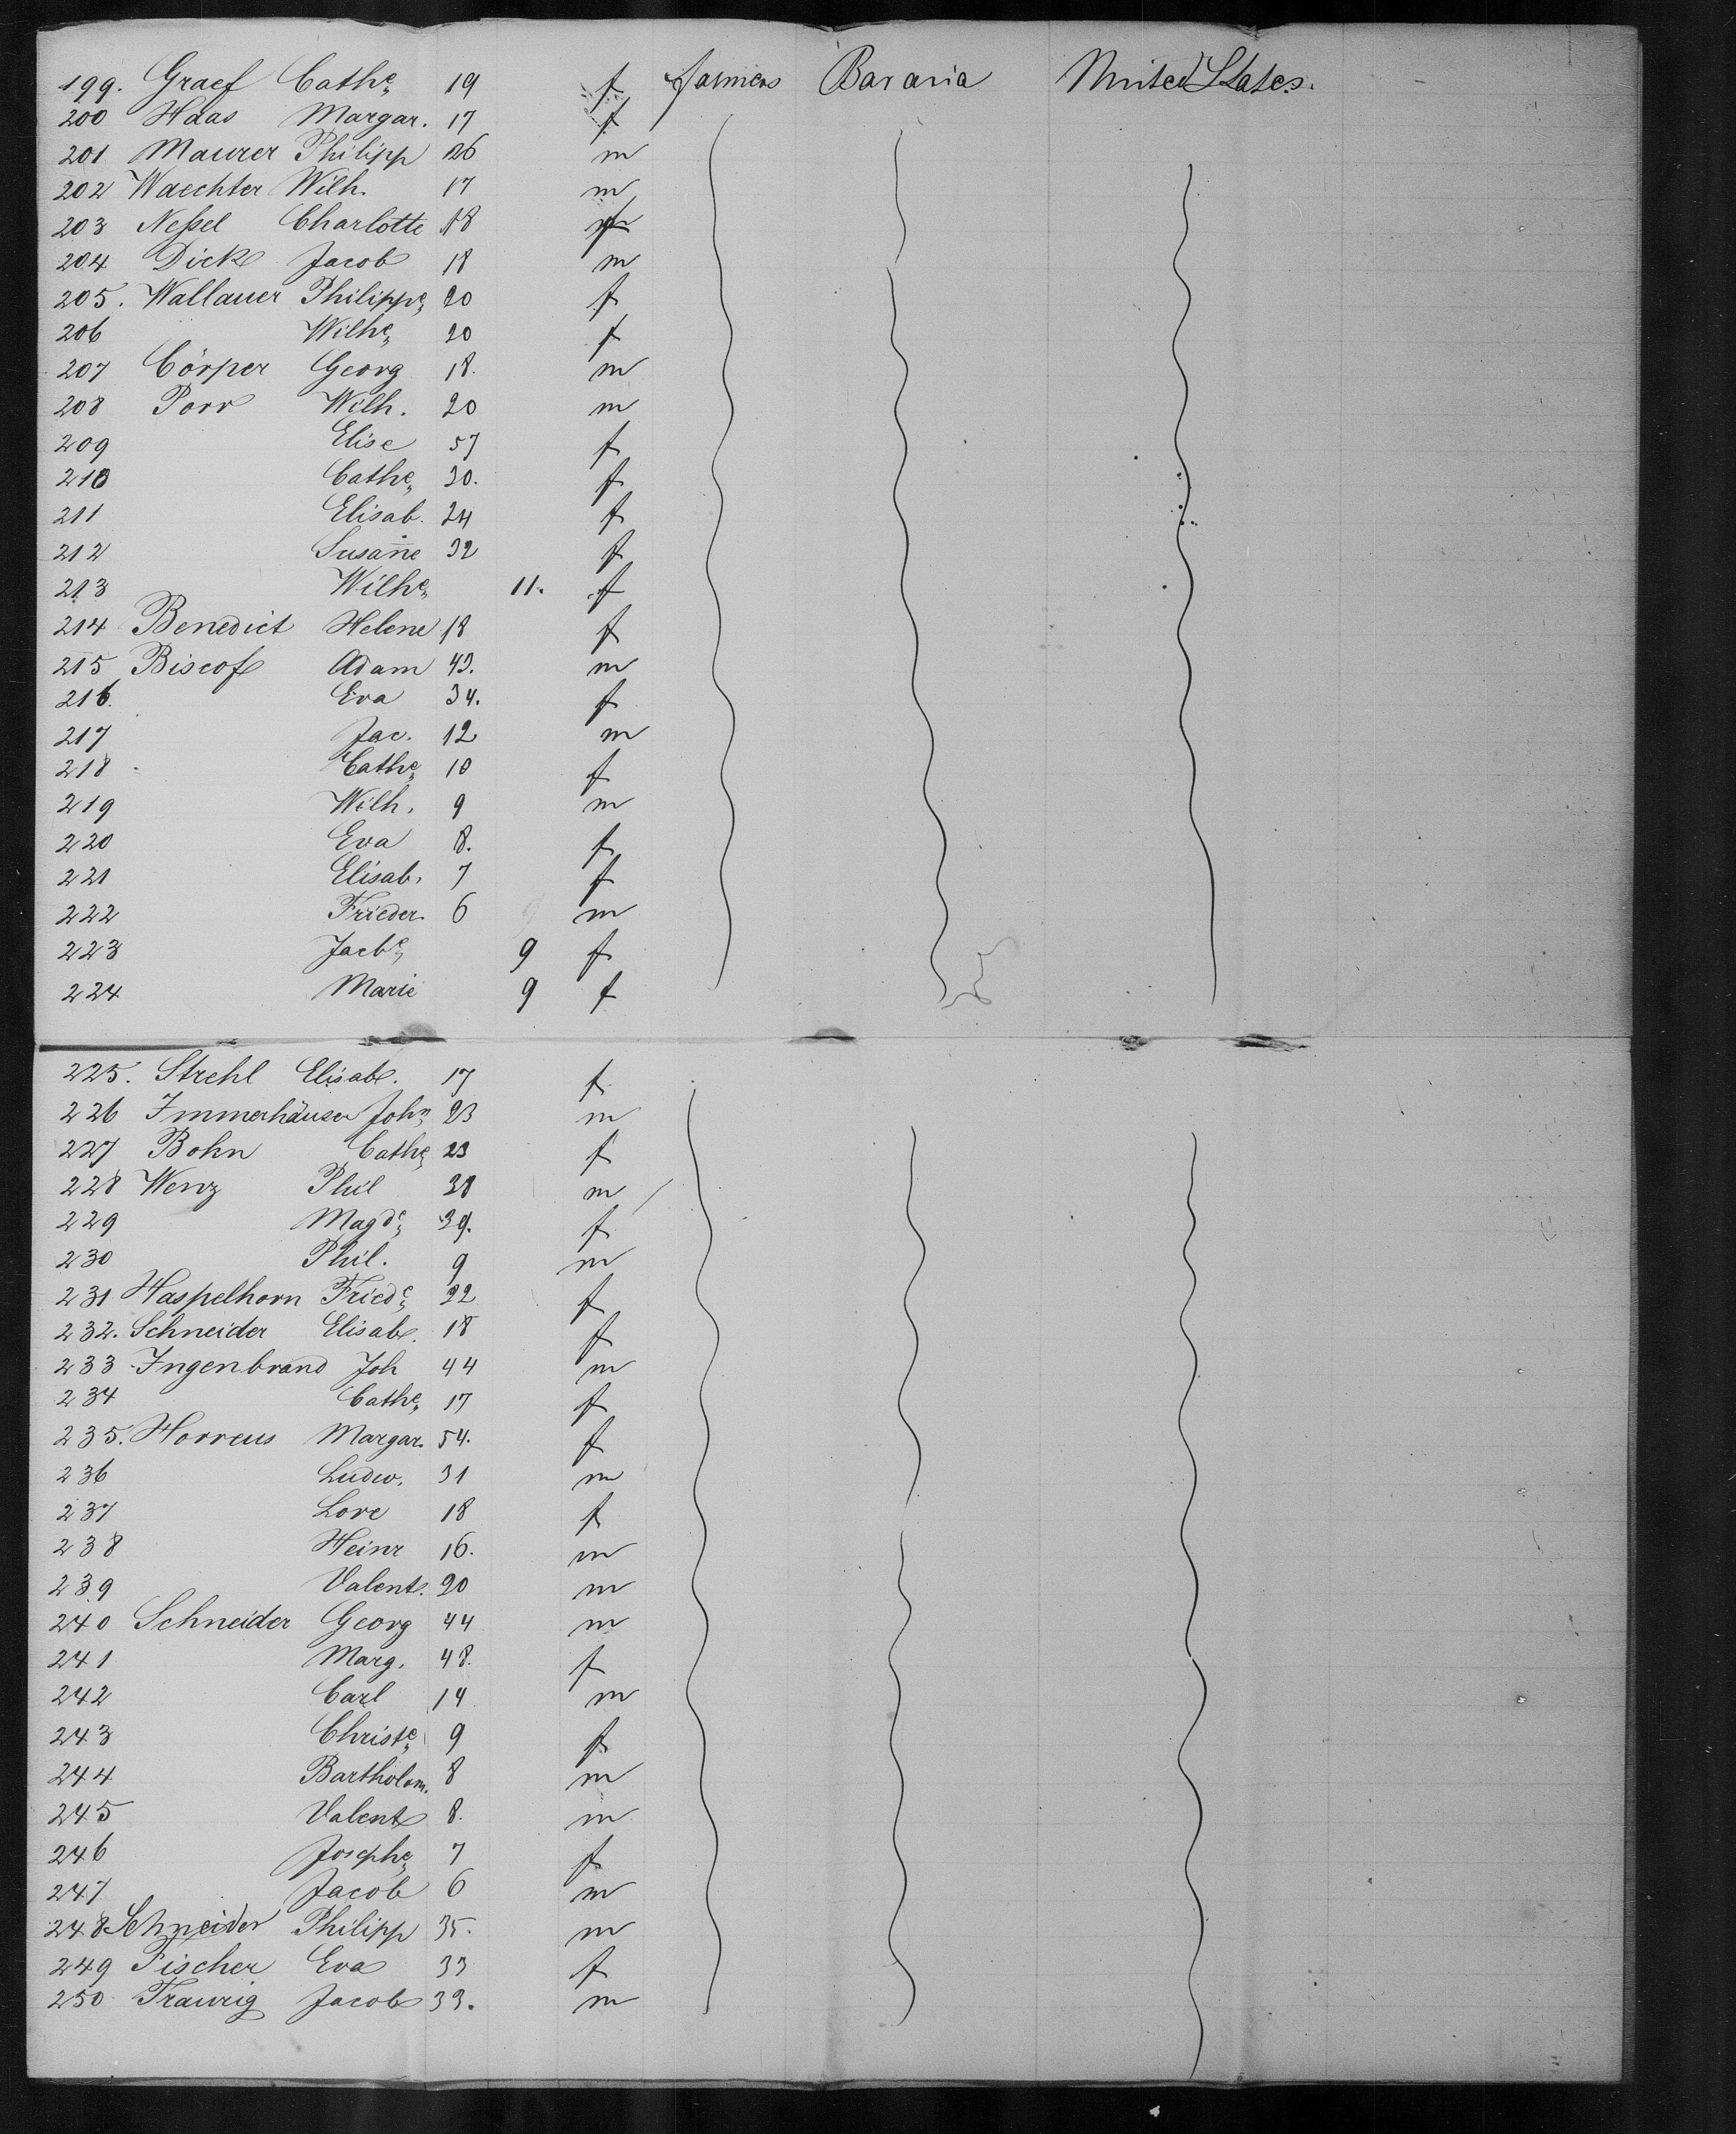 199. Graef Cathe 19 f farmers Bavaria United States.
200 Haas Margar. 17 f
201 Maurer Philipp 26 m
202 Waechter Wilh. 17 m
203 Neßel Charlotte 18 f
204 Dick Jacob 18 m
205. Wallauer Philippe 20 f
206 Wilhe 20 f
207 Cörper Georg 18. m
208 Porr Wilh. 20 m
209 Elise 57 f
210 Cathe 30. f
211 Elisab. 24 f
212 Susan̄e 32 f
213 Wilhe 11. f
214 Benedict Helene 18 f
215 Biscof Adam 43. m
216. Eva 34. f
217 Jac. 12 m
218 Cathe 10 f
219 Wilh. 9 m
220 Eva 8. f
221 Elisab. 7 f
222 Frieder. 6 m
223 Jacbe 9 f
224 Marie 9 f
225. Strehl Elisab. 17 f
226 Immerhäuser John 23 m
227 Bohn Cathe 23 f
228 Wenz Phil m
229 Magde 39. f
230 Phil. 9 m
231 Haspelhorn Friede 22 f
232. Schneider Elisab. 18 f
233 Ingenbrand Joh 44 m
234 Cathe 17 f
235. Horreus Margar. 54. f
236 Ludw. 31 m
237 Lore 18 f
238 Heinr 16. m
239 Valent. 20 m
240 Schneider Georg 44 m
241 Marg. 48. f
242 Carl 14 m
243 Christe 9 f
244 Bartholom. 8 m
245 Valent 8. m
246 Josephe 7 f
247 Jacob 6 m
248 Schneider Philipp 35. m
249 Fischer Eva 33 f
250 Traurig Jacob 33. m